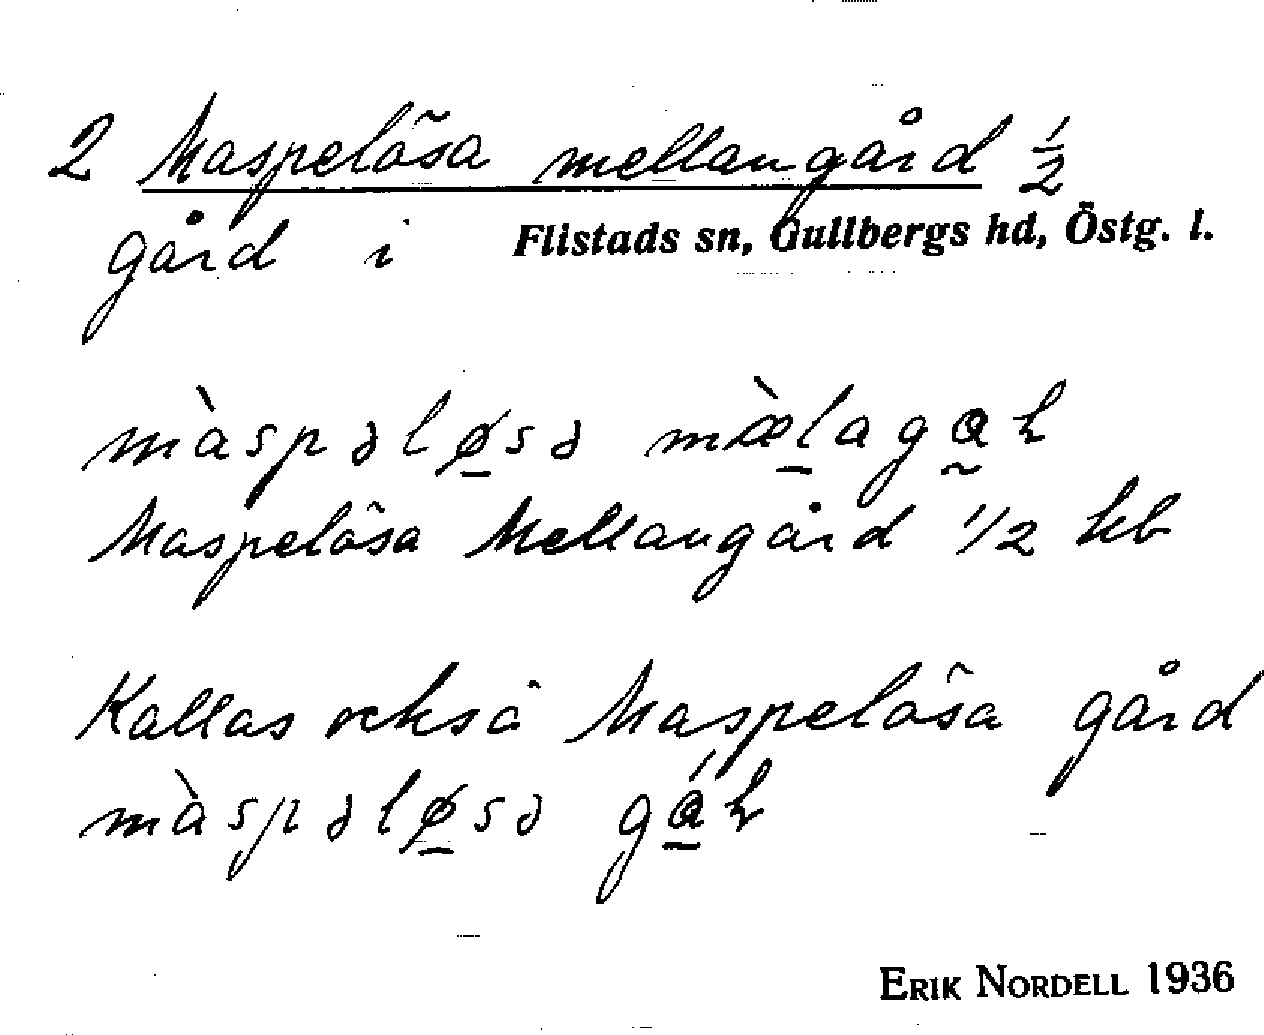 2 Maspelösa mellangård ½
gård i Flistads sn, Gullbergs hd, Östg. l.
màspəløsə mæ̀lagaꞎ
Maspelösa Mellangård 1/2 hb
Kallas också Maspelösa gård
màspəløsə
ERIK NORDELL 1936